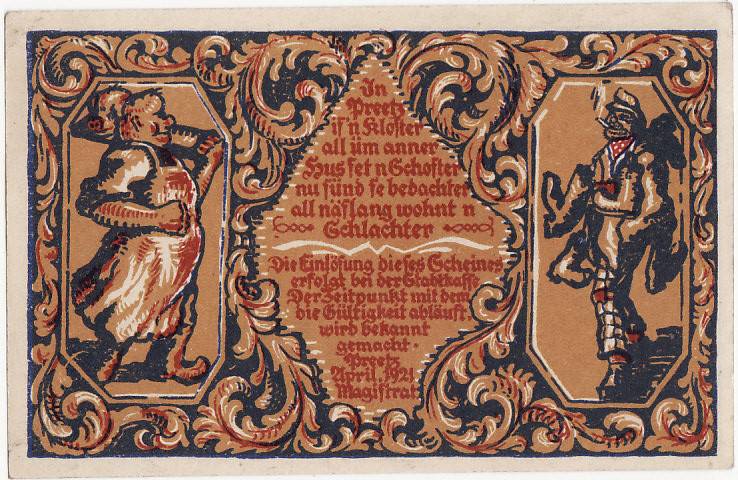 In
Preetz
is'n Kloster
all üm anner
Hus set n Schoster
nu sünd se bedachter
all näslang wohnt n
Schlachter
Die Einlösung dieses Scheines
erfolgt bei der Stadtkasse
Der Zeitpunkt mit dem
die Gültigkeit abläuft
wird bekannt
gemacht.
Preetz
April. 1921
Magistrat